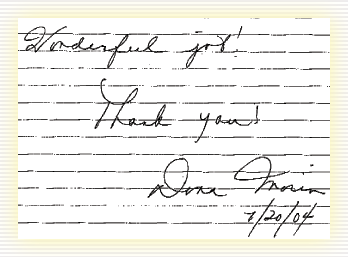 Wonderful job!
Thank you!
Dona Morin
1/20/04